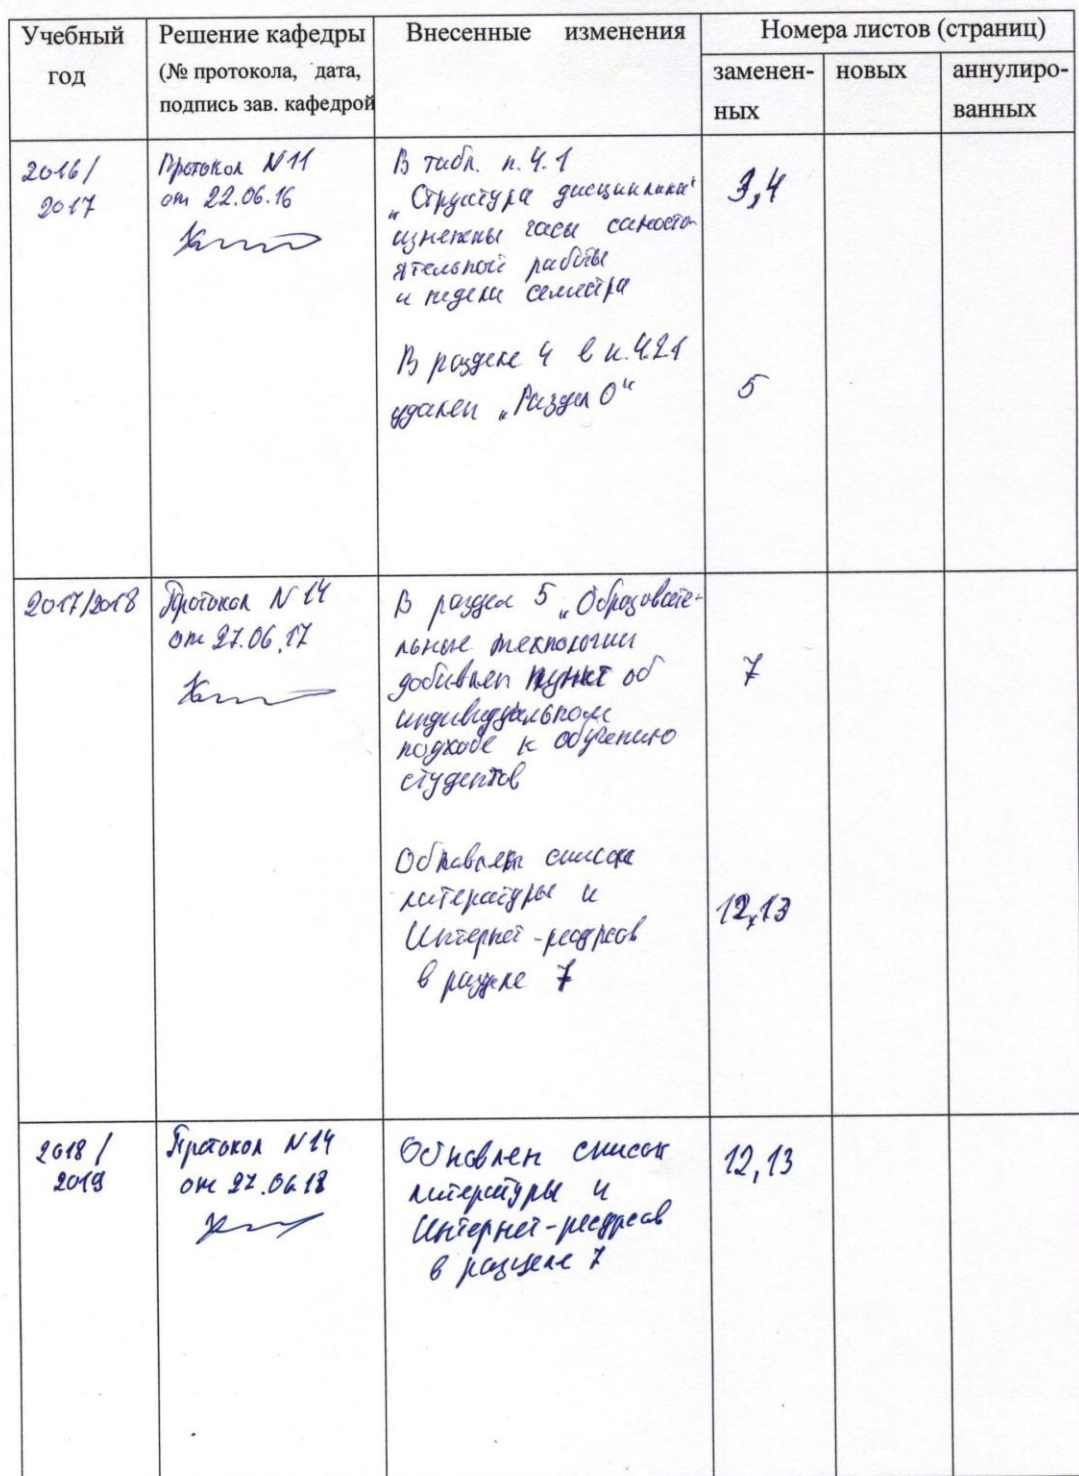 Учебный год
Решение кафедры
(№ протокола, дата,
подпись зав. кафедрой
Внесенные изменения
Номера листов (страниц)
заменен-
ных
новых
аннулиро-
ванных
2016/
2017
Протокол N11
от 22.06.16
В табл. п.4.1
„Структура дисциплины"
изменены часы самосто-
ятельной работы
и недели семестра
3,4
В разделе 4 в п.4.2.1
удален „Раздел 0"
5
2017/2018
Протокол N14
от 27.06.17
В раздел 5 „Образовате-
льные технологии
добавлен пункт об
индивидуальном
подходе к обучению
студентов
7
Обновлен список
литературы и
Интернет-ресурсов
в разделе 7
12,13
2018/
2019
Протокол N14
от 27.06.18
Обновлен список
литературы и
Интернет-ресурсов
в разделе 7
12,13